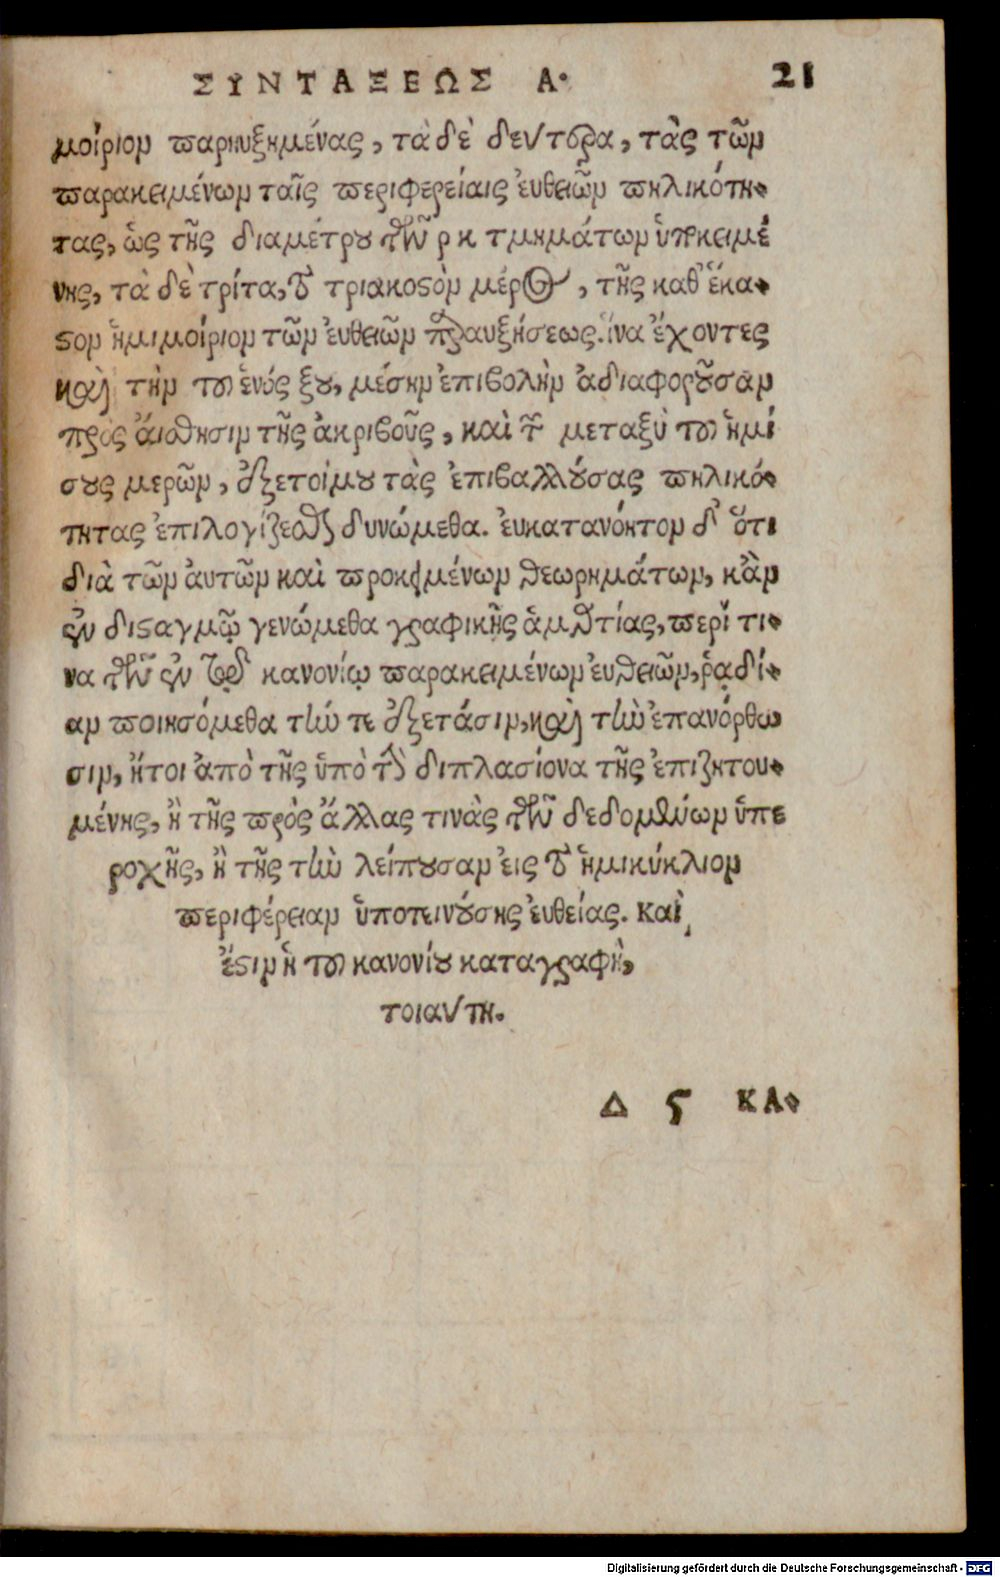 ΣΥΝΤΑΞΕΩΣ Α. 21
μοίριον παρηυξημένας, τὰ δὲ δεύτερα, τὰς τῶν
παρακειμένων ταῖς περιφερείαις ἐυθειῶν πηλικότη-
τας, ὡς τῆς διαμέτρου τῶν ρκ τμημάτων ὑποκειμέ
νης, τὰ δὲ τρίτα, τὸ τριακοστὸν μέρος, τῆς καθ' ἕκα-
στον ἡμιμοίριον τῶν ἐυθειῶν παραυξήσεως. ἵνα ἔχοντες
καὶ τὴν τοῦ ἑνός ξου, μέσην ἐπιβολὴν ἀδιαφοροῦσαν
πρὸς ἄισθησιν τῆς ἀκριβοῦς, καὶ τῶν μεταξὺ τοῦ ἡμί
σους μερῶν, ἐξετοίμου τὰς ἐπιβαλλούσας πηλικό-
τητας ἐπιλογίζεσθαι δυνώμεθα. ἐυκατανόητον δ' ὅτι
διὰ τῶν ἀυτῶν καὶ προκειμένων θεωρημάτων, κἂν
ἐν δισταγμῷ γενώμεθα γραφικῆς ἁμαρτίας, περί τι-
να τῶν ἐν τῷ κανονίῳ παρακειμένων ἐυθειῶν, ῥᾳδί-
αν ποιησόμεθα τήν τε ἐξετάσιν, καὶ τὴν ἐπανόρθω
σιν, ἤτοι ἀπὸ τῆς ὑπὸ τὴν διπλασίονα τῆς ἐπιζητου-
μένης, ἢ τῆς πρὸς ἄλλας τινὰς τῶν δεδομένων ὑπε
ροχῆς, ἢ τῆς τὴν λείπουσαν εἰς τὸ ἡμικύκλιον
περιφέρειαν ὑποτεινούσης ἐυθείας. Καί
ἔστιν ἡ τοῦ κανονίου καταγραφὴ,
τοιαύτη.
Δ 5 ΚΑ-
Digitalisierung gefördert durch die Deutsche Forschungsgemeinschaft - DFG